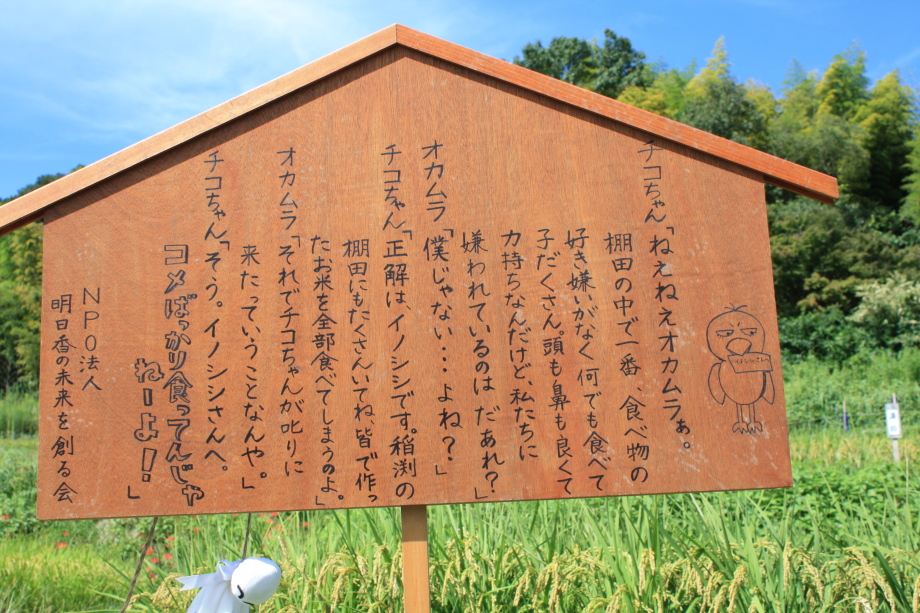 チコちゃん「ねえねえオカムラぁ。
棚田の中で一番、食べ物の
好き嫌いがなく何でも食べて
子だくさん。頭も鼻も良くて
力持ちなんだけど、私たちに
嫌われているのはだあれ?」
オカムラ「僕じゃない・・・よね?」
チコちゃん「正解はイノシシです。稲渕の
棚田にもたくさんいてね、皆で作っ
たお米を全部食べてしまうのよ。」
オカムラ「それでチコちゃんが叱りに
来たっていうことなんや。」
チコちゃん「そう。イノシシさんへ。
コメばっかり食ってんじゃ
ねーよ!」
NPO法人
明日香の未来を創る会